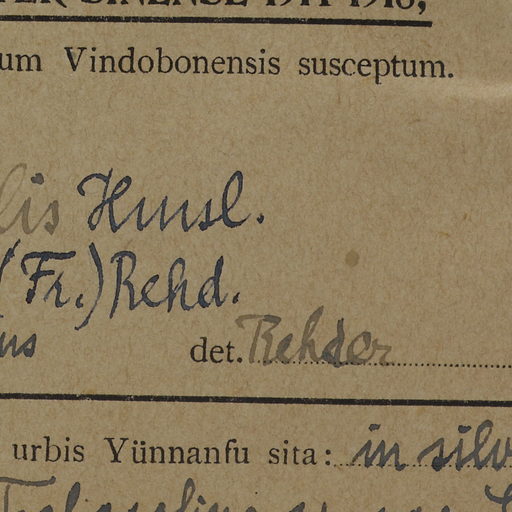 ITER SINENSE 1914-1918,
um Vindobonensis susceptum.
lis Hemsl.
(Fr.) Rehd.
us det. Rehder
urbis Yünnanfu sita: in silv